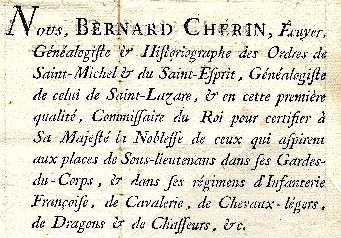 Nous, BERNARD CHÉRIN, Écuyer,
Généalogiste & Historiographe des Ordres de
Saint-Michel & du Saint-Esprit, Généalogiste
de celui de Saint-Lazare, & en cette première
qualité, Commissaire du Roi pour certifier à
Sa Majesté la Noblesse de ceux qui aspirent
aux places de Sous-lieutenans dans ses Gardes-
du-Corps, & dans ses régimens d'Infanterie
Françoise, de Cavalerie, de Chevaux-légers,
de Dragons & de Chasseurs, &c.